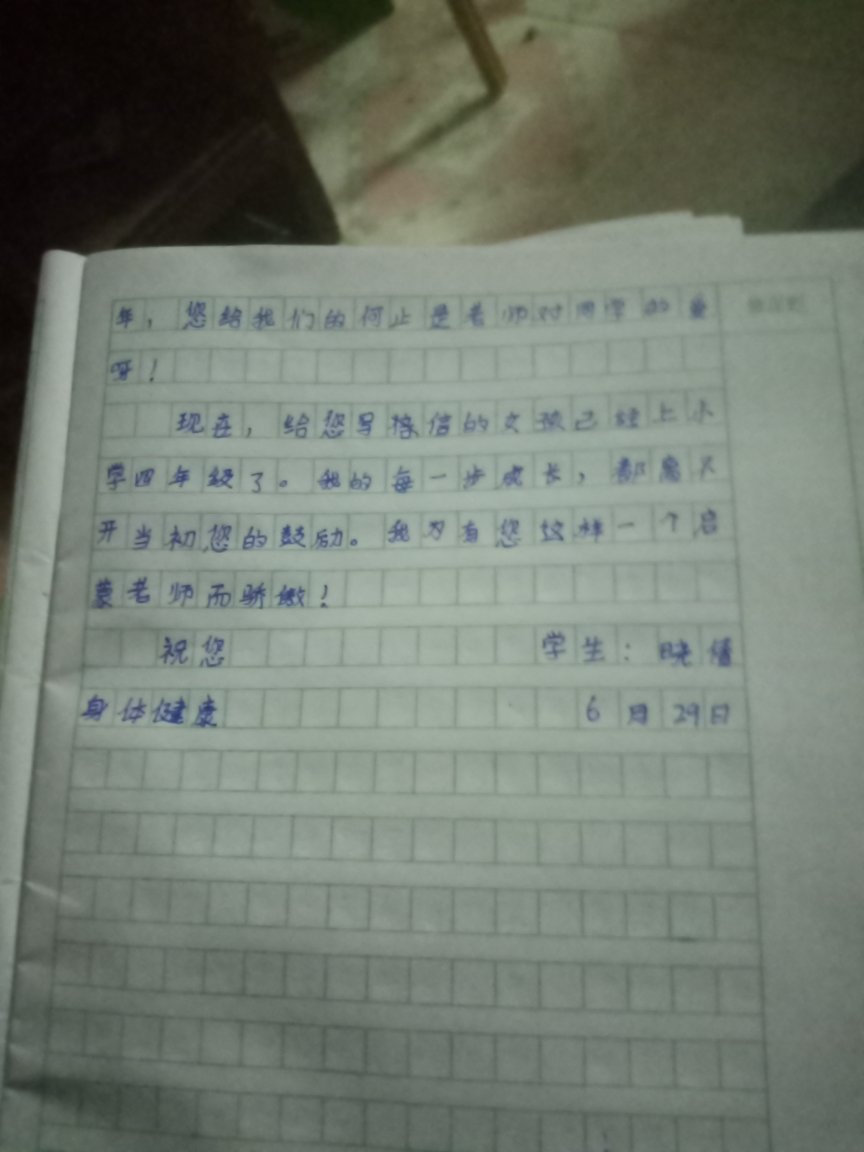 年，您给我们的何止是老师对同学的爱
呀！
现在，给您写这信的女孩已经上小
学四年级了。我的每一步成长，都离不
开当初您的鼓励。我为有您这样一个启
蒙老师而骄傲！
祝您 学生：晓倩
身体健康 6月29日